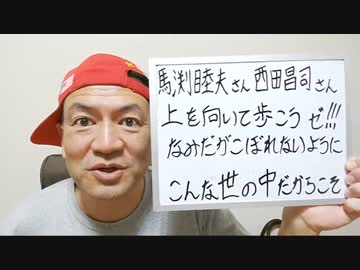 馬渕睦夫さん 西田昌司さん
上を向いて歩こうゼ!!!
なみだがこぼれないように
こんな世の中だからこそ